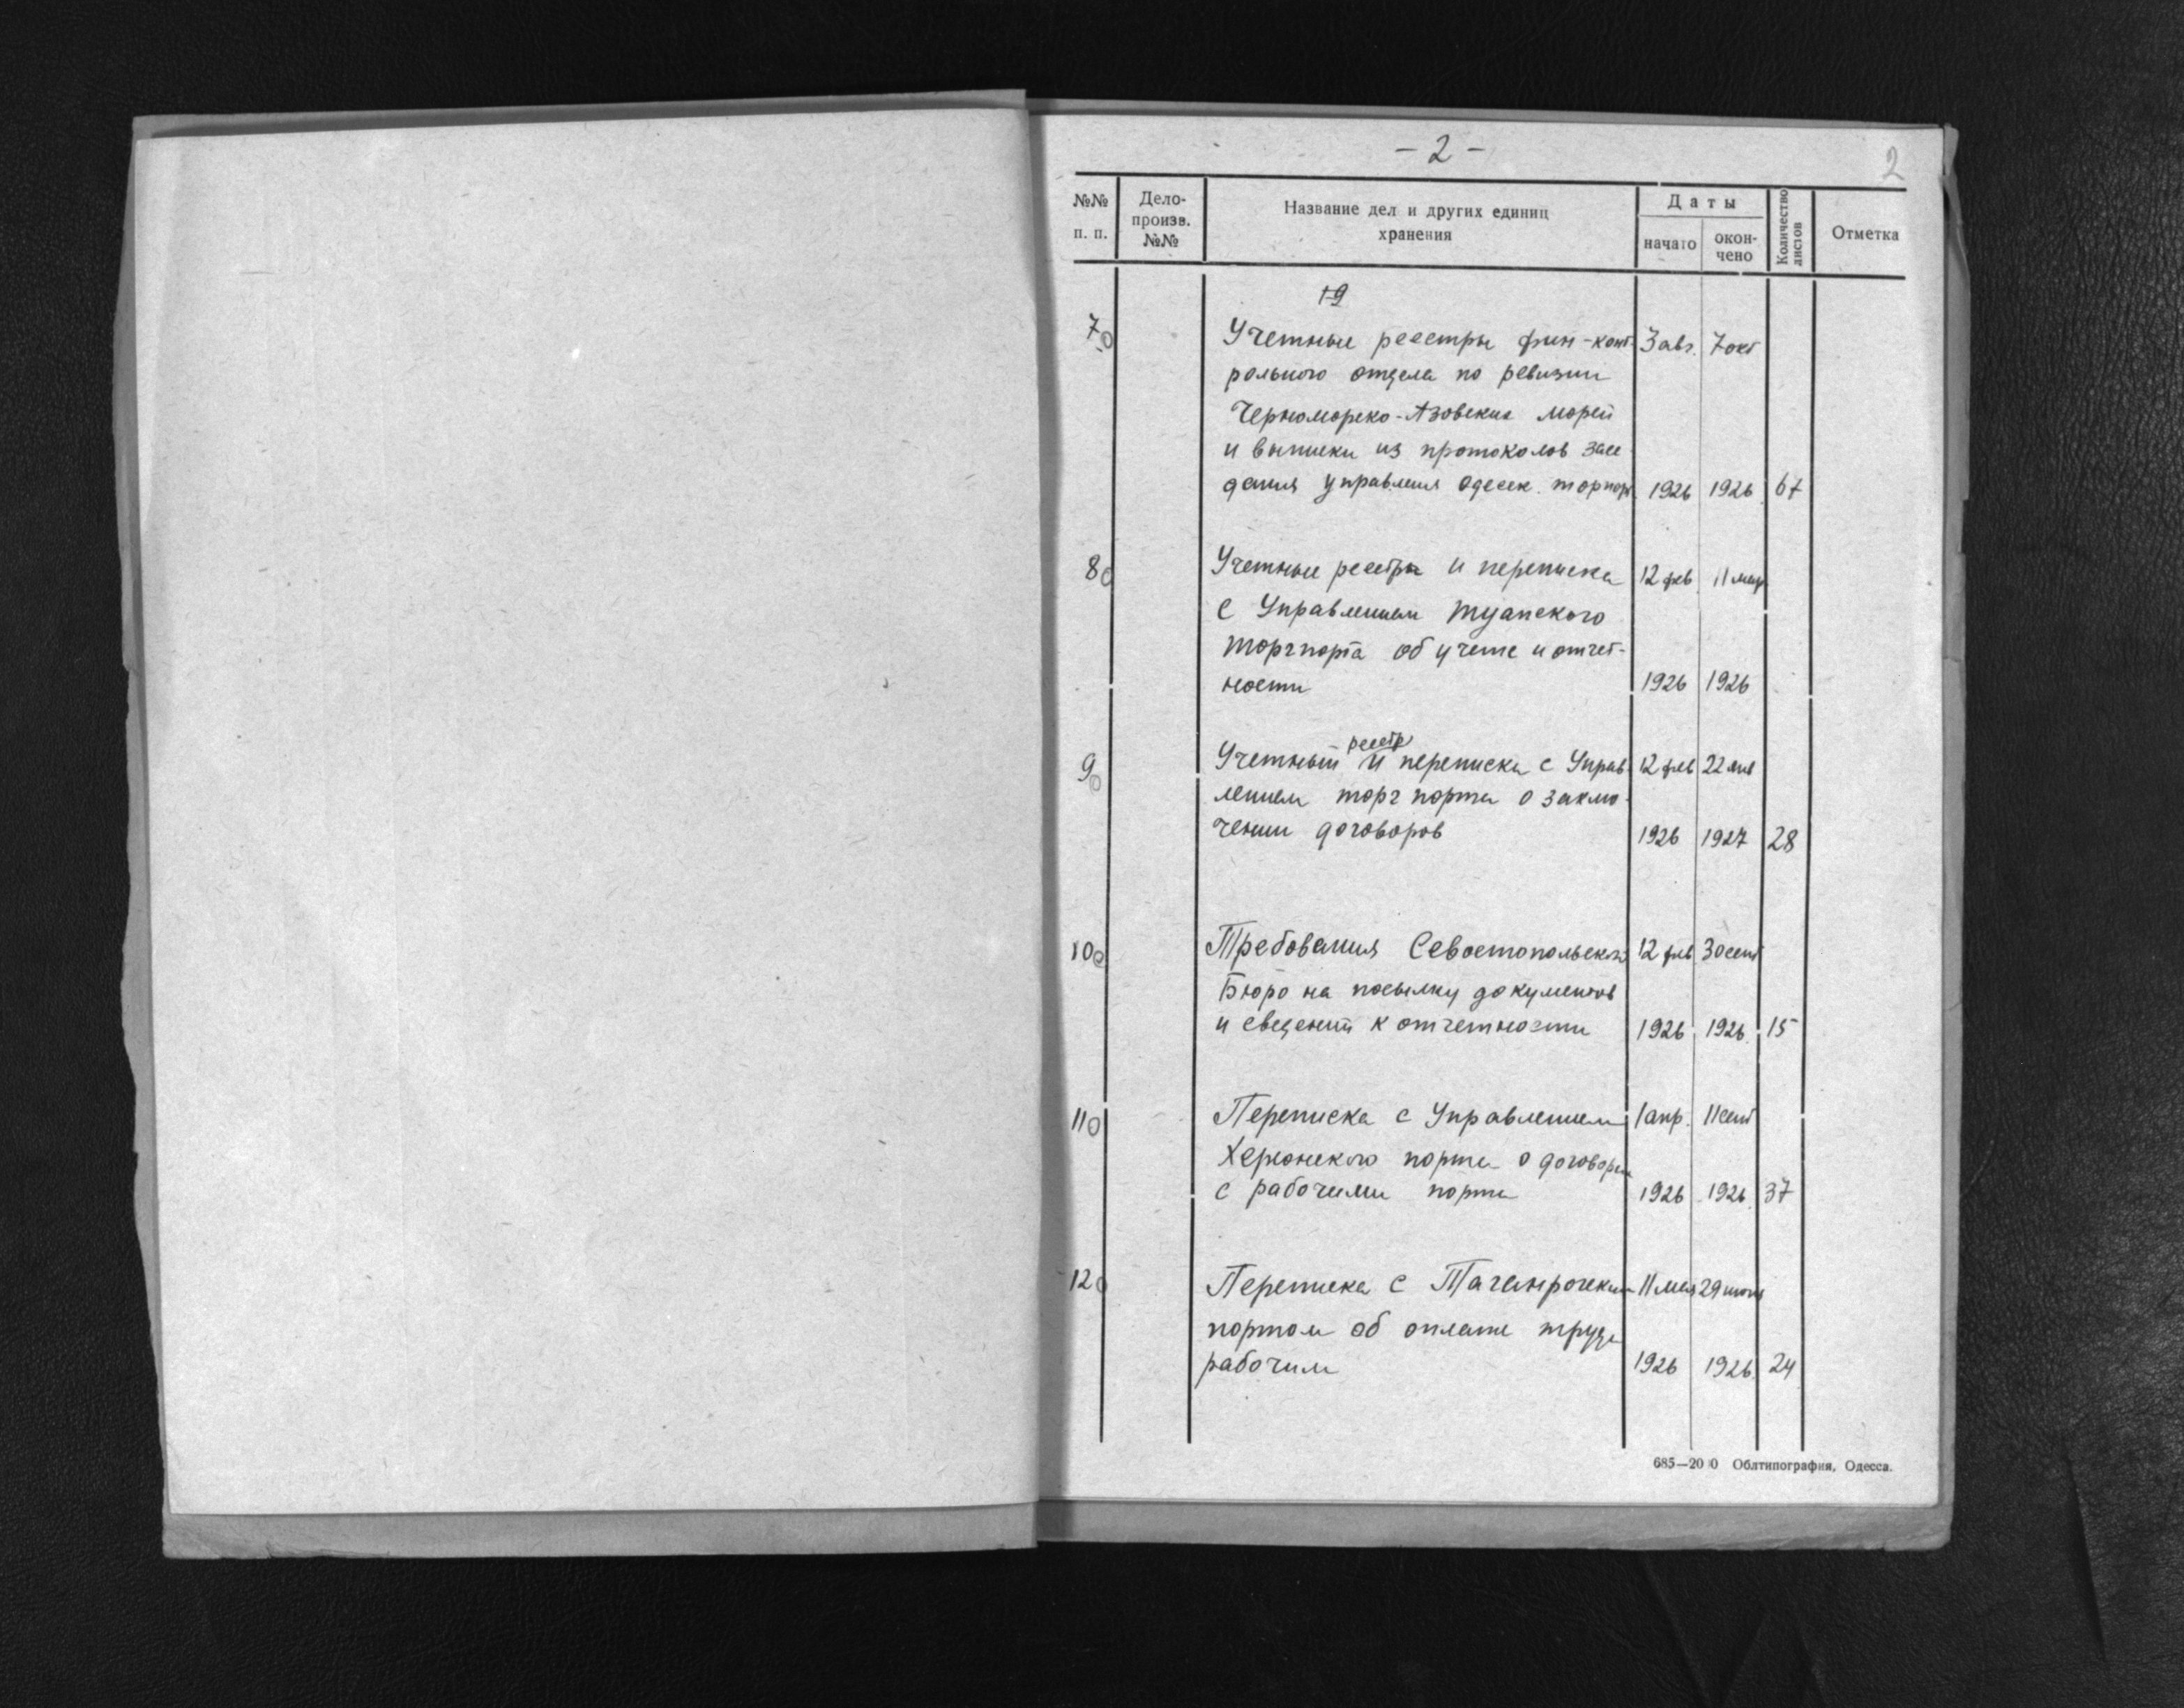 - 2 -
2
№№ п. п.
Дело-произв. №№
Название дел и других единиц хранения
Даты
начато
окончено
Количество листов
Отметка
19
7 Учетные реестры фин-конт- 3 авг. 7 окт
рольного отдела по ревизии
Черноморско-Азовских морей
и выписки из протоколов засе-
дания управления Одесск. торгпорт. 1926 1926 67
8 Учетные реестры и переписка 12 фев. 11 мар
с Управлением Туапского
торгпорта об учете и отчет-
ности 1926 1926
реестр
9 Учетный и переписка с Управ- 12 фев 22 янв
лением торгпорта о заклю-
чении договоров 1926 1927 28
10 Требования Севостопольского 12 фев. 30 сент
Бюро на посылку документов
и сведений к отчетности 1926 1926 15
11 Переписка с Управлением 1 апр. 11 сент
Херсонского порта о договорах
с рабочими порта 1926 1926 37
12 Переписка с Таганрогским 11 мая 29
портом об оплате труда
рабочим 1926 1926 24
Облтипография, Одесса.